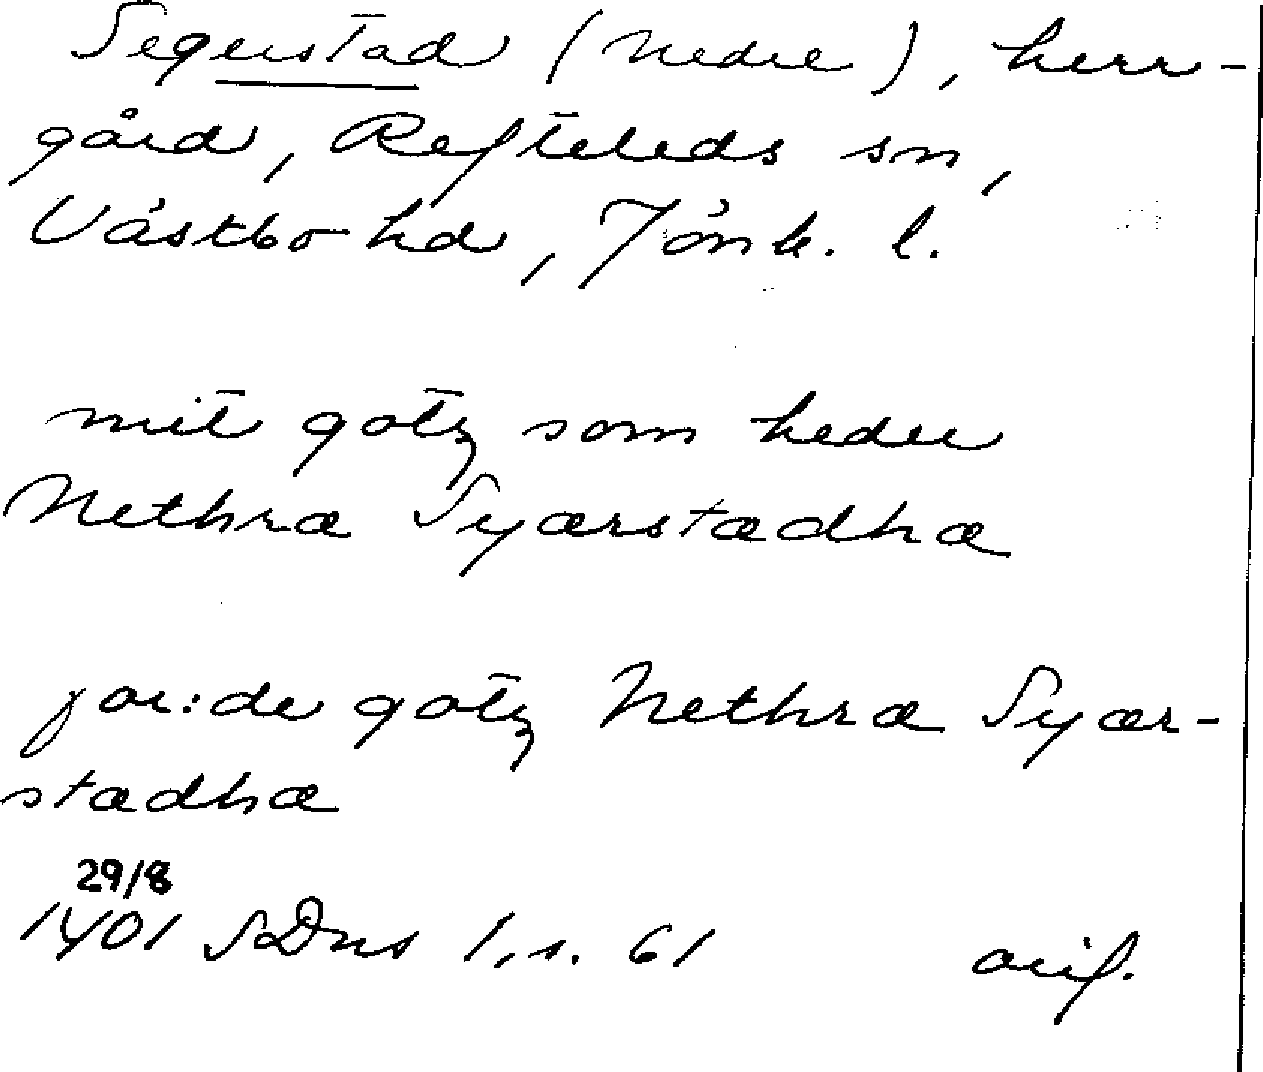 Segerstad (Nedre), herr-
gård, Refteleds sn,
Västbo hd, Jönk. l.
mit gotz som heder
Nethræ Syærstædhæ
for:de gotz Nethræ Syær-
stædhæ
29/8
1401 SDns 1, s. 61 orig.